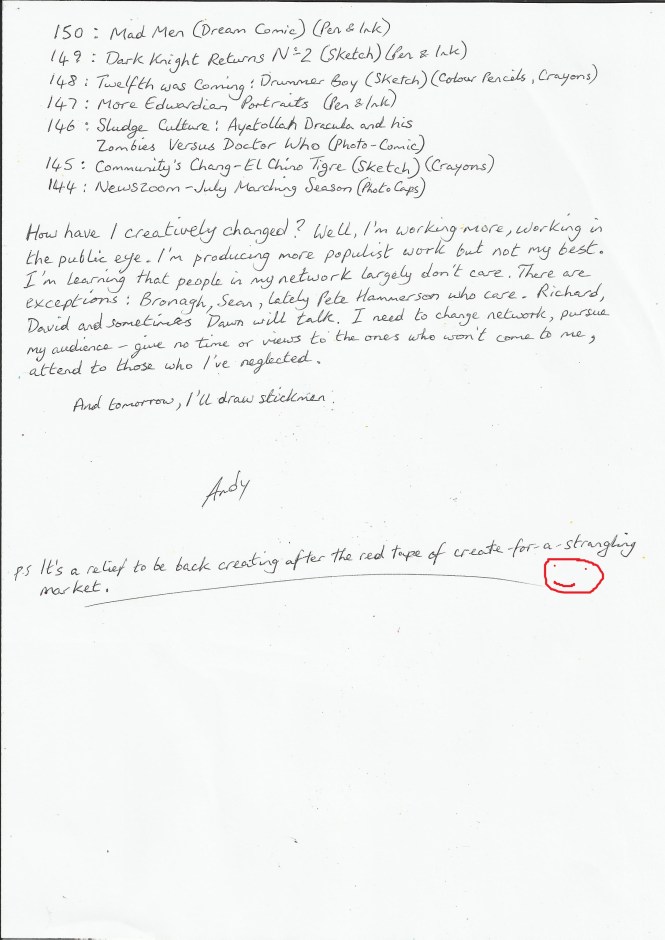 150 : Mad Men (Dream Comic) (Pen & Ink)
149 : Dark Knight Returns Nº2 (Sketch) (Pen & Ink)
148 : Twelfth was Coming : Drummer Boy (Sketch) (Colour Pencils, Crayons)
147 : More Edwardian Portraits (Pen & Ink)
146 : Sludge Culture : Ayatollah Dracula and his
Zombies Versus Doctor Who (Photo-Comic)
145 : Community's Chang - El Chino Tigre (Sketch) (Crayons)
144 : Newszoom - July Marching Season (Photo Caps)
How have I creatively changed? Well, I'm working more, working in
the public eye. I'm producing more populist work but not my best.
I'm learning that people in my network largely don't care. There are
exceptions : Bronagh, Sean, lately Pete Hammerson who care. Richard,
David and sometimes Dawn will talk. I need to change network, pursue
my audience - give no time or views to the ones who won't come to me,
attend to those who I've neglected.
And tomorrow, I'll draw stickmen.
Andy
PS It's a relief to be back creating after the red tape of create-for-a-strangling
market.